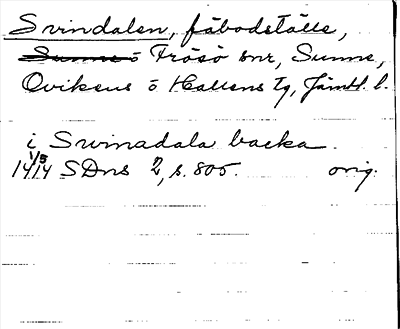 Svindalen, fäbodställe,
Sunne o Frösö snr, Sunne,
Ovikens o Hallens tg, Jämtl. l.
i Svinadala backa
1/5
1414 SDns 2, s. 805. orig.